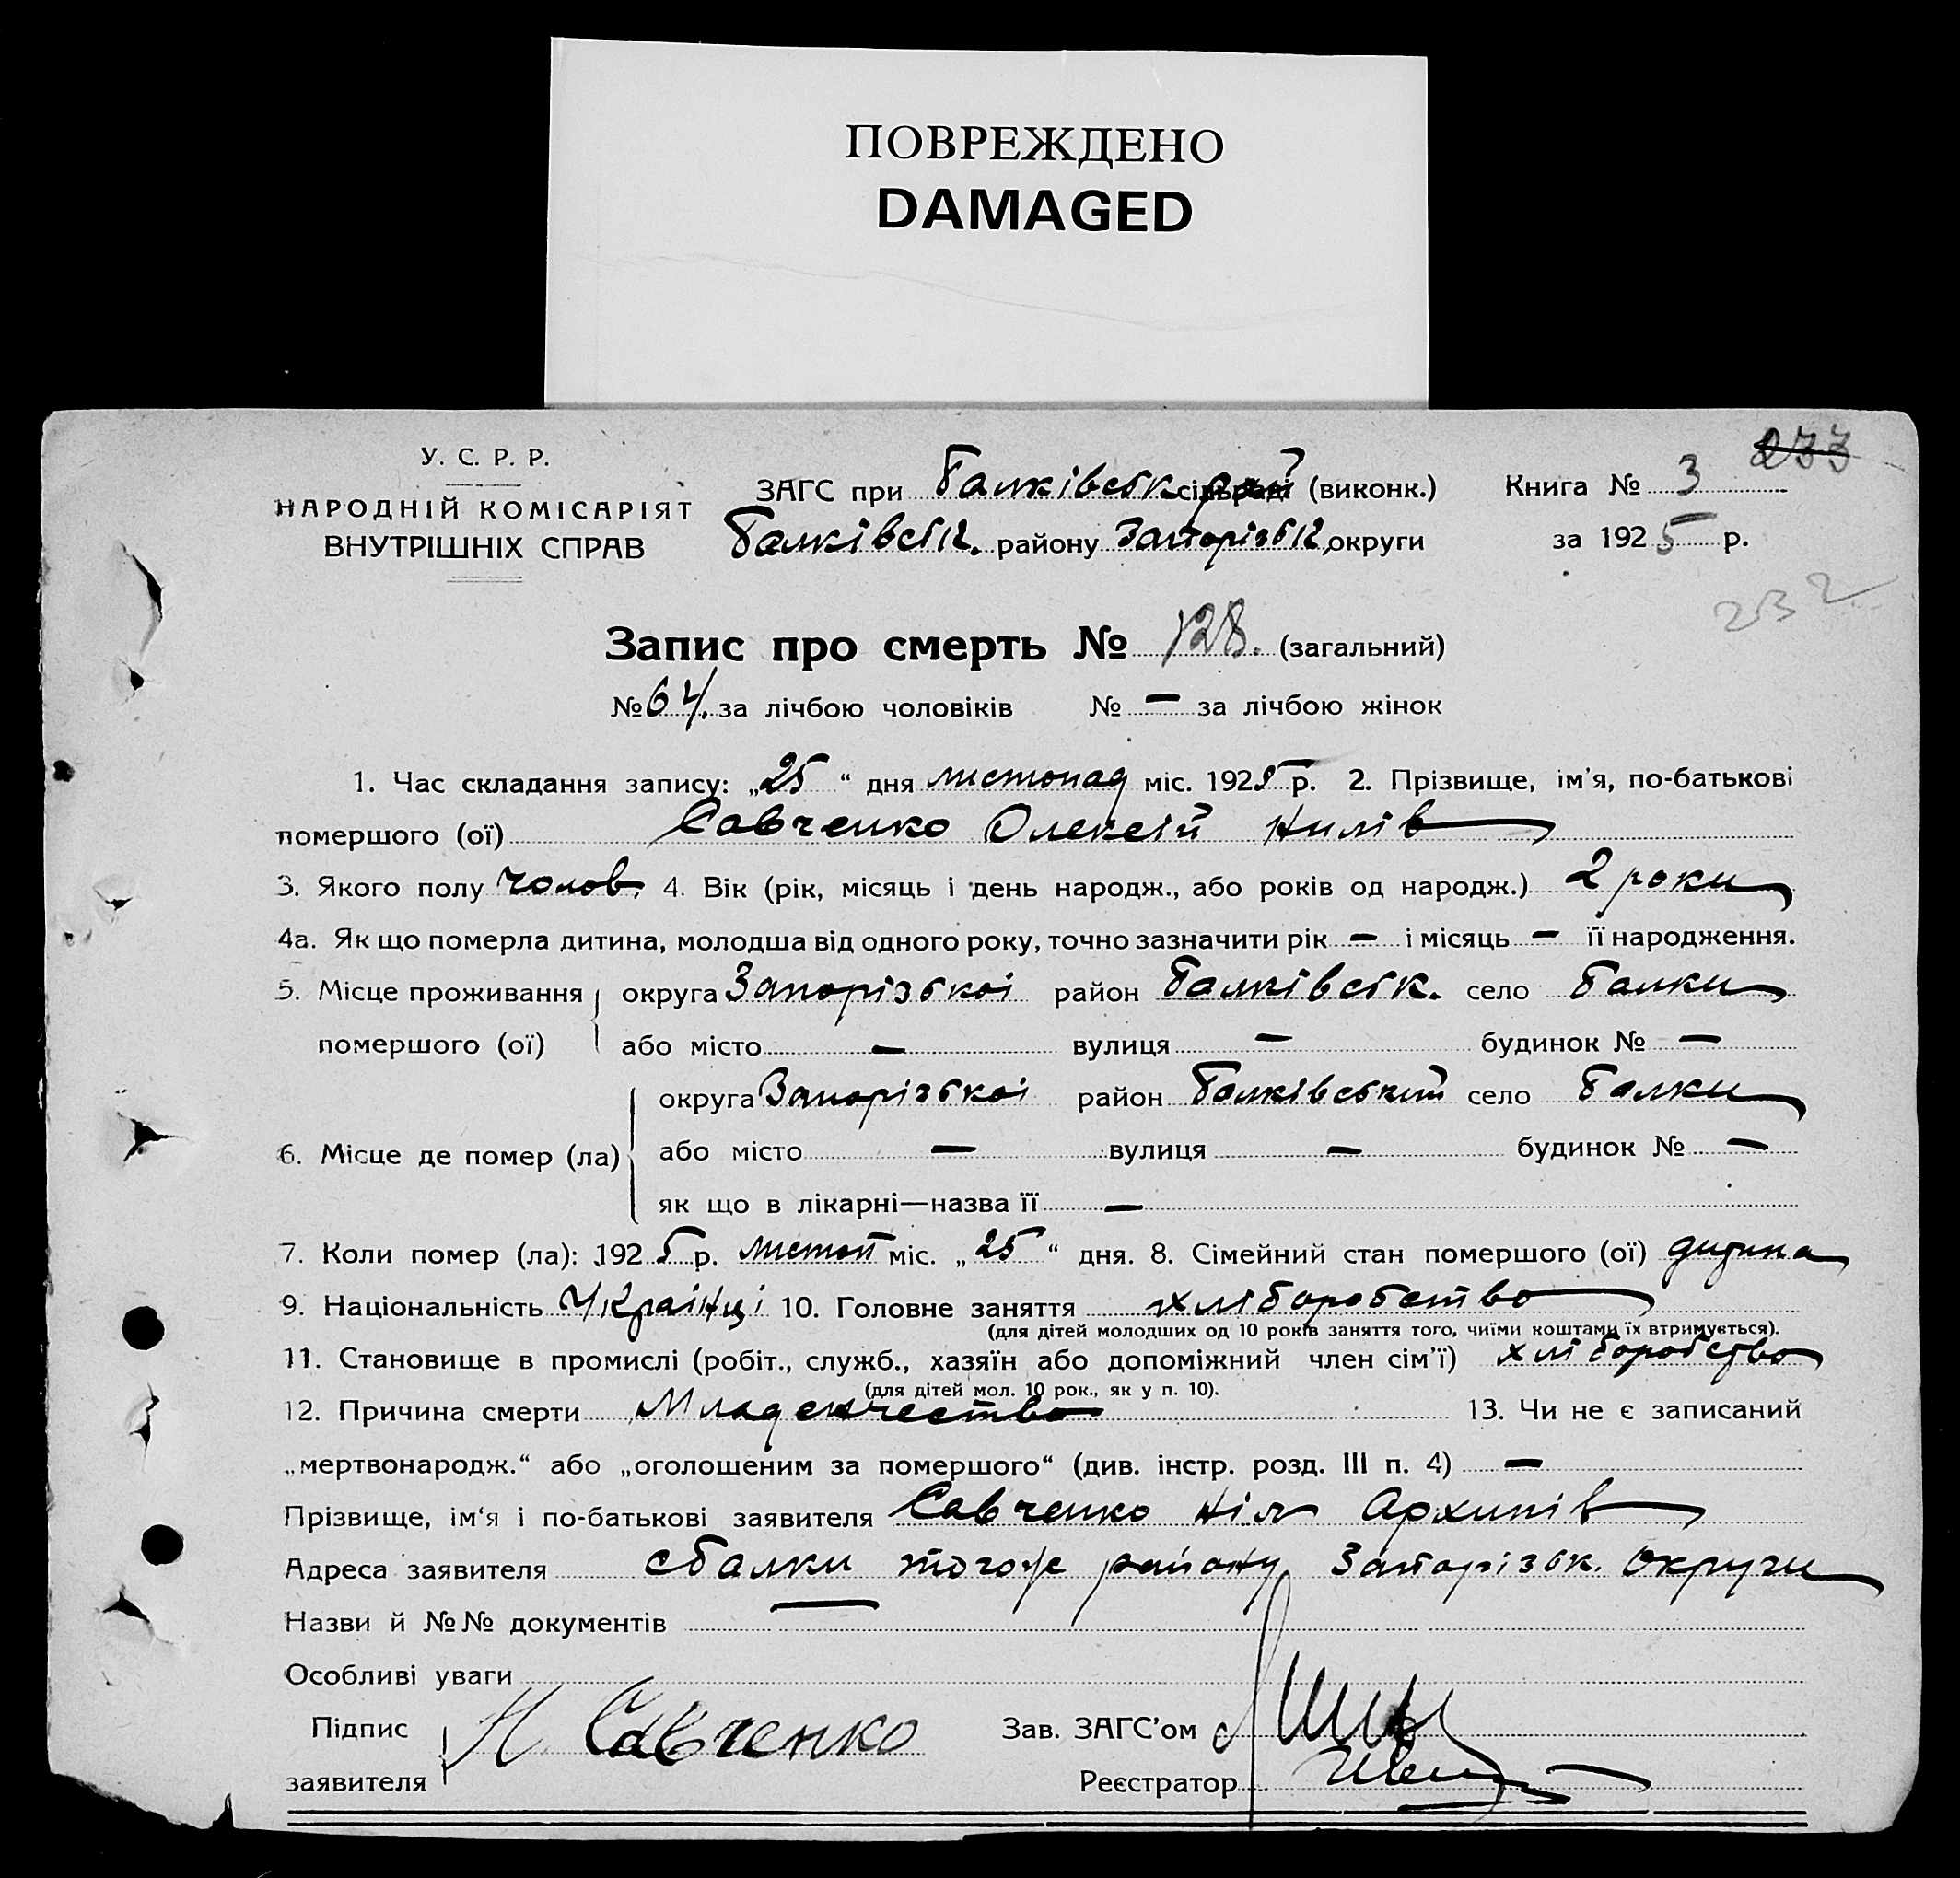 ПОВРЕЖДЕНО
DAMAGED
У. С. Р. Р.
НАРОДНІЙ КОМІСАРІЯТ
ВНУТРІШНІХ СПРАВ
ЗАГС при Балківськ. сільраді (виконк.)
Балківськ. району Запорізьк. округи
Книга № 3 233
за 1925 р.
232
Запис про смерть № 128. (загальний)
№ 64. за лічбою чоловіків № — за лічбою жінок
1. Час складання запису: „25“ дня листопад міс. 1925 р. 2. Прізвище, ім'я, по-батькові
помершого (ої) Савченко Олексій Нилів
3. Якого полу чолов. 4. Вік (рік, місяць і день народж., або років од народж.) 2 роки
4а. Як що померла дитина, молодша від одного року, точно зазначити рік — і місяць — її народження.
5. Місце проживання помершого (ої) округа Запорізькоі район Балківськ. село Балки
або місто — вулиця — будинок № —
6. Місце де помер (ла) округа Запорізькоі район Балківський село Балки
або місто — вулиця — будинок № —
як що в лікарні—назва її —
7. Коли помер (ла): 1925 р. листоп міс. „25“ дня. 8. Сімейний стан помершого (ої) дитина
9. Національність Українці 10. Головне заняття хліборобство
(для дітей молодших од 10 років заняття того, чиїми коштами їх втримується).
11. Становище в промислі (робіт., служб., хазяїн або допоміжний член сім'ї) хліборобство
(для дітей мол. 10 рок., як у п. 10).
12. Причина смерти Младенчество 13. Чи не є записаний
„мертвонародж.“ або „оголошеним за помершого“ (див. інстр. розд. III п. 4) —
Прізвище, ім'я і по-батькові заявителя Савченко Ніл Архипів
Адреса заявителя с Балки тогоже району Запорізьк. Округи
Назви й №№ документів —
Особливі уваги
Підпис заявителя Н. Савченко
Зав. ЗАГС'ом
Реєстратор